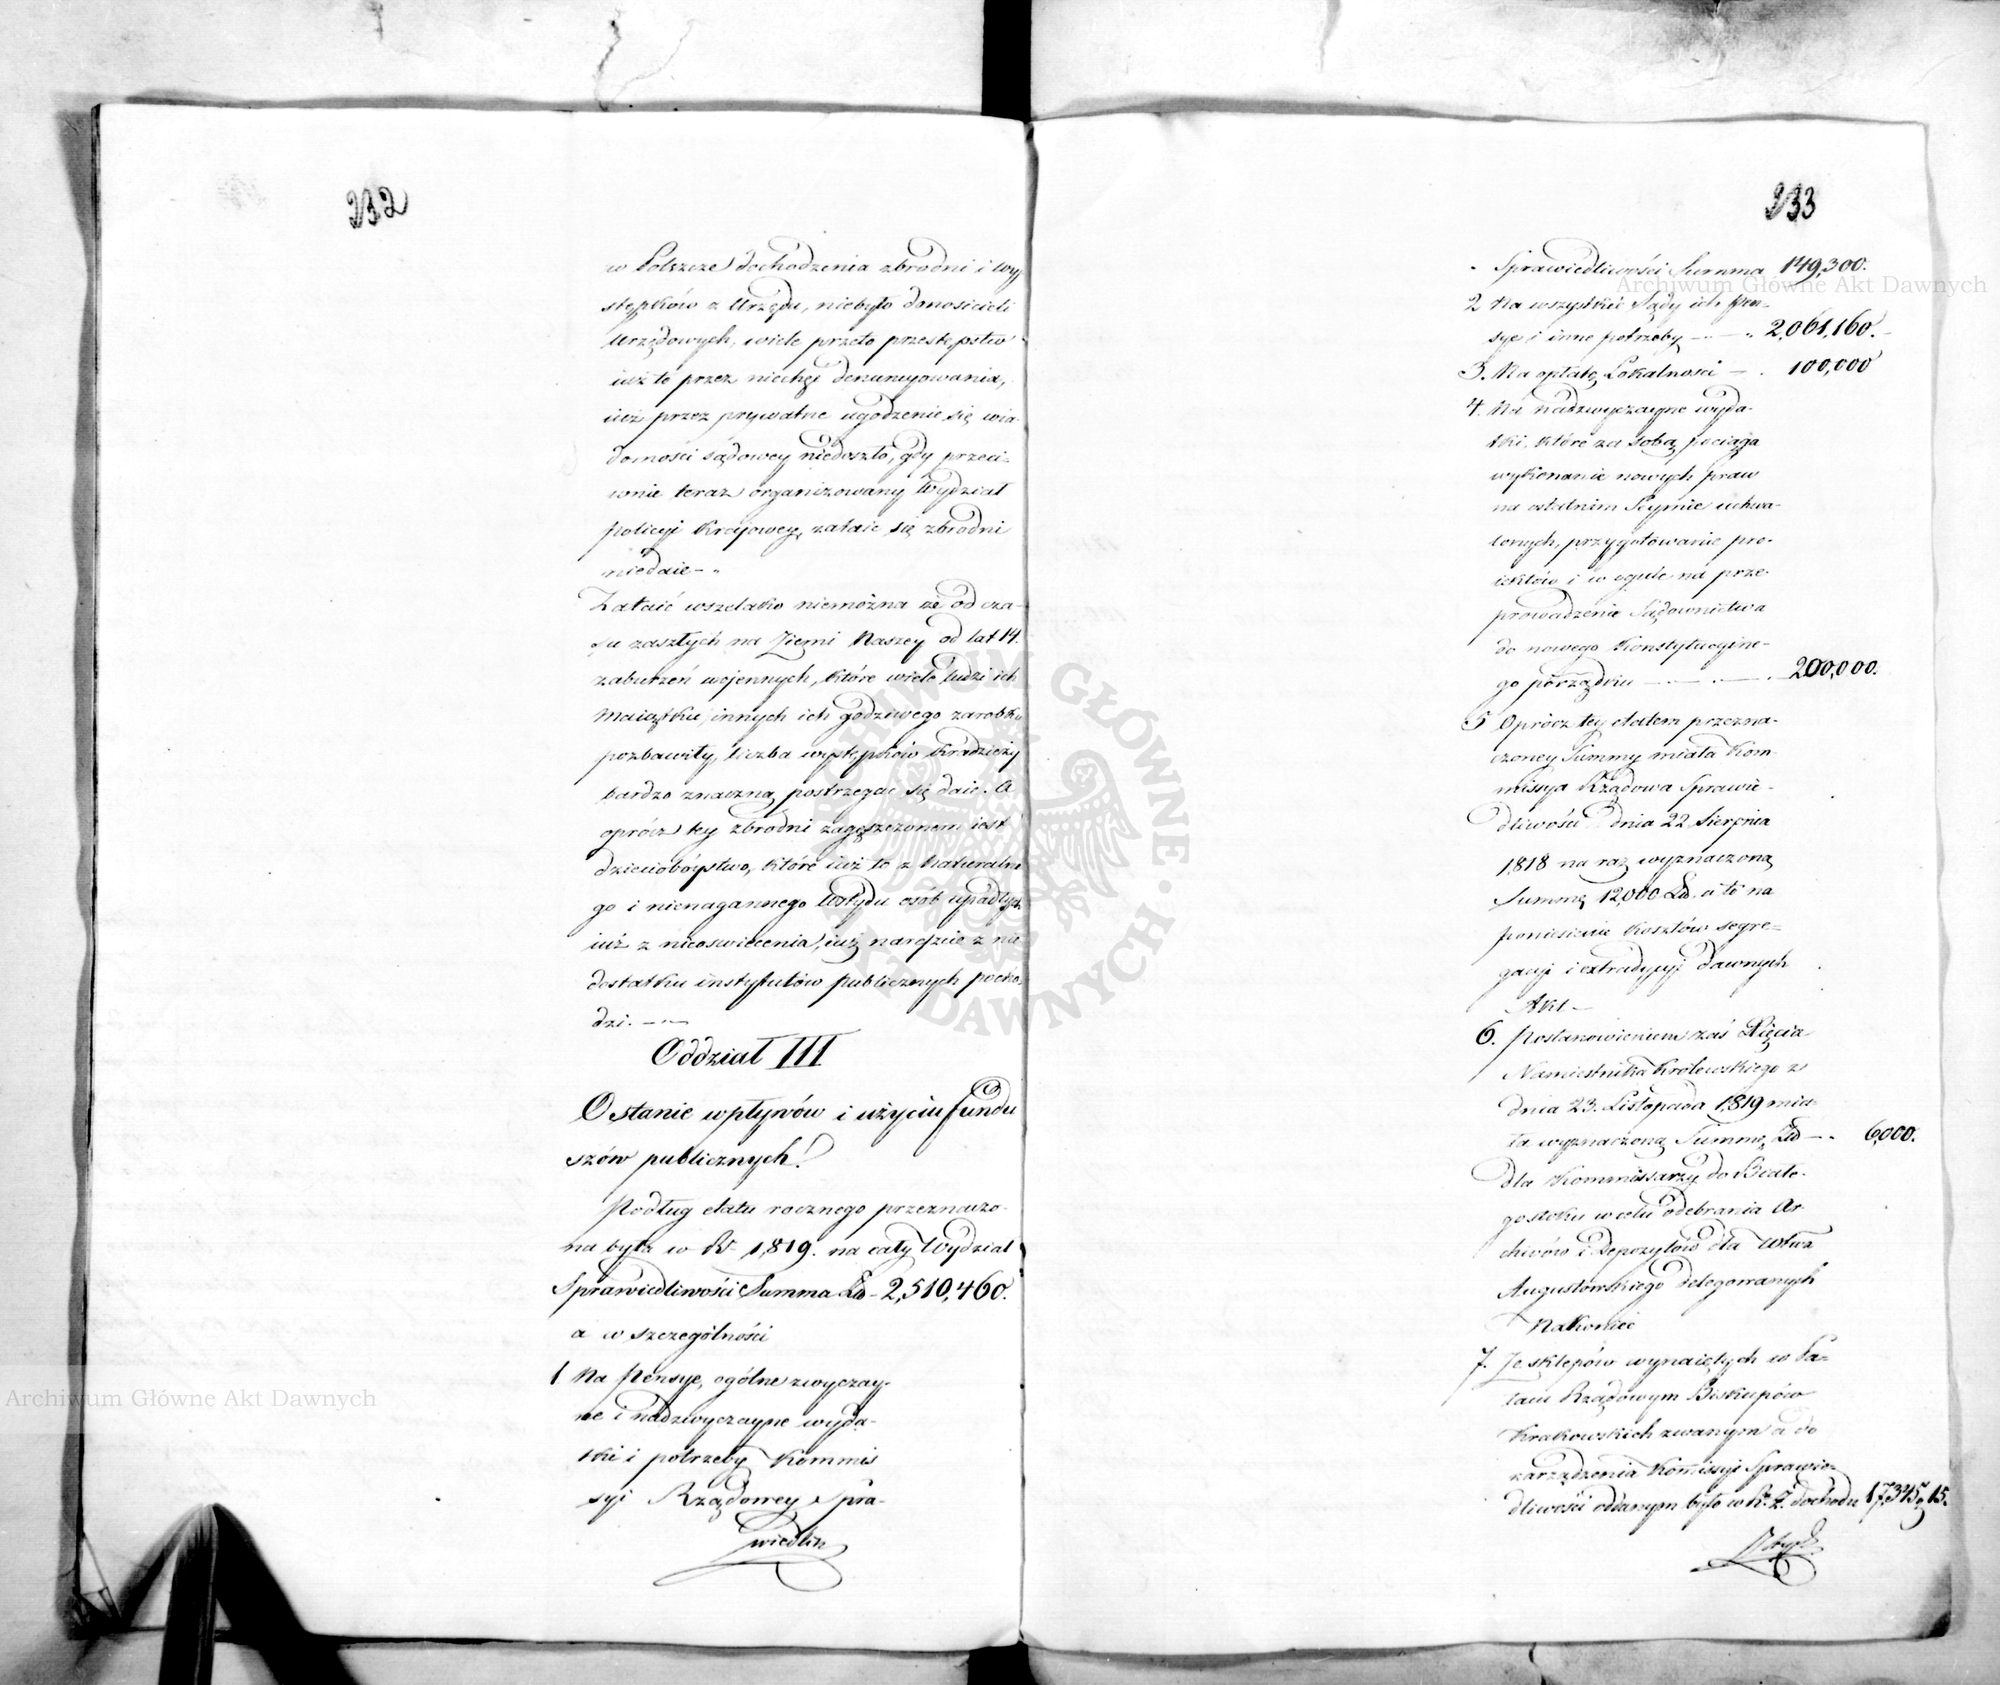 232
w Polszcze dochodzenia zbrodni i wy-
stępków z Urzędu, niebyło donosicieli
Urzędowych, wiele przeto przestępstw
iuż to przez niechęć denuncyowania,
iuż przez prywatne ugodzenie się wia-
domości sądowey niedoszło, gdy przeci-
wnie teraz organizowany Wydział
Policyi Krajowey, zataić się zbrodni
niedaie -
Zataić wszelako niemożna że od cza-
su zaszłych na Ziemi Naszey od lat 14.
zaburzeń wojennych, które wiele ludzi ich
Maiątku, innych ich godziwego zarobku
pozbawiły, liczba występków kradzieży
bardzo znaczną postrzegać się daie. A
oprócz tey zbrodni zagęszczonem iest
dzieciobóystwo, które iuż to z Naturalne
go i nienagannego wstydu osób upadłych
iuż z nieoswiecenia, iuż nareszcie z nie
dostatku instytutów publicznych pocho-
dzi. -
Oddział III
O stanie wpływów i użyciu fundu
szów publicznych!
Podług etatu rocznego przeznaczo-
na była w R. 1,819. na cały Wydział
Sprawiedliwości Summa Zło - 2,510,460.
a w szczególności
1 Na Pensye, ogólne zwyczay-
ne i nadzwyczayne wyda-
tki i potrzeby Kommis
syi Rządowey Spra-
wiedliw
233
Sprawiedliwości Summa 149,300.
2 Na wszystkie Sądy ich Pen-
sye i inne potrzeby - 2,061,160.
3. Na opłatę Lokalności - 100,000
4. Na nadzwyczayne wyda-
tki, które za sobą pociąga
wykonanie nowych praw
na ostatnim Seymie uchwa-
lonych, przygotowanie pro-
iektów i w ogule na prze-
prowadzenie Sądownictwa
do nowego Konstytucyine-
go porządku - 200,000.
5 Oprócz tey etatem przezna-
czoney Summy miała Kom-
missya Rządowa Sprawie-
dliwości dnia 22 Sierpnia
1818 na raz wyznaczoną
Summę 12,000 Zło. a to na
poniesienie kosztów segre-
gacyi i extradycyi dawnych
Akt -
6. Postanowieniem zaś Xięcia
Namiestnika Królewskiego z
dnia 23. Listopada 1,819 mia-
ła wyznaczoną Summę Zło - 6,000.
dla Kommissarzy do Białe-
gostoku w celu odebrania Ar-
chiwów i Depozytów dla Wtwa
Augustowskiego delegowanych
Nakoniec
7. Ze sklepów wynaiętych w Pa-
łacu Rządowym Biskupów
Krakowskich zwanym a do
zarządzenia Komissyi Sprawie-
dliwości oddanym było w R. Z. dochodu 17345, 15.
Archiwum Główne Akt Dawnych
Archiwum Główne Akt Dawnych
ARCHIWUM GŁÓWNE AKT DAWNYCH